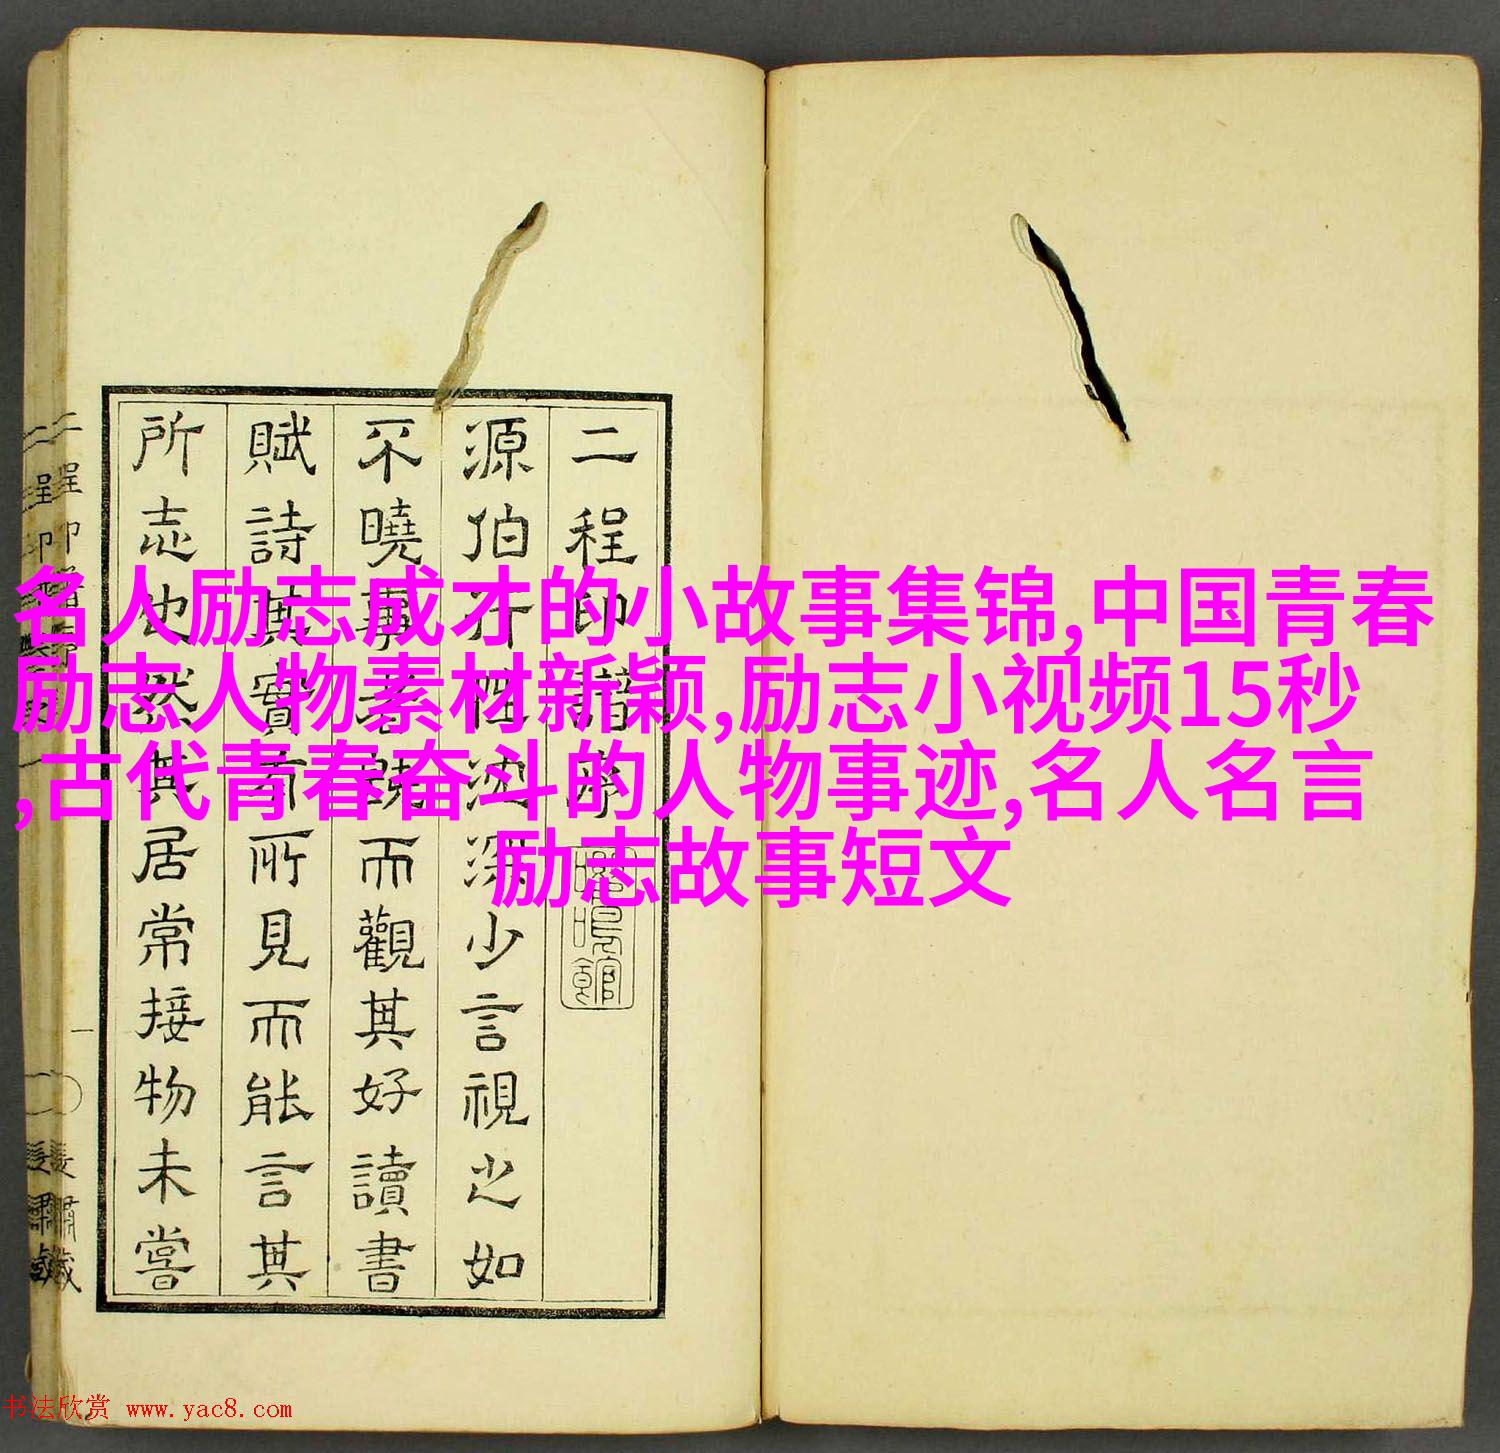 名人励志成才的小故事集锦,中国青春
励志人物素材新颖,励志小视频15秒
,古代青春奋斗的人物事迹,名人名言
励志故事短文
二程印譜序
源伯介性沈深少言視之如
不曉事者 而觀其好讀書
賦詩其實有所見而能言其
所志也然其居常接物未嘗
書法欣赏 www.yac8.com